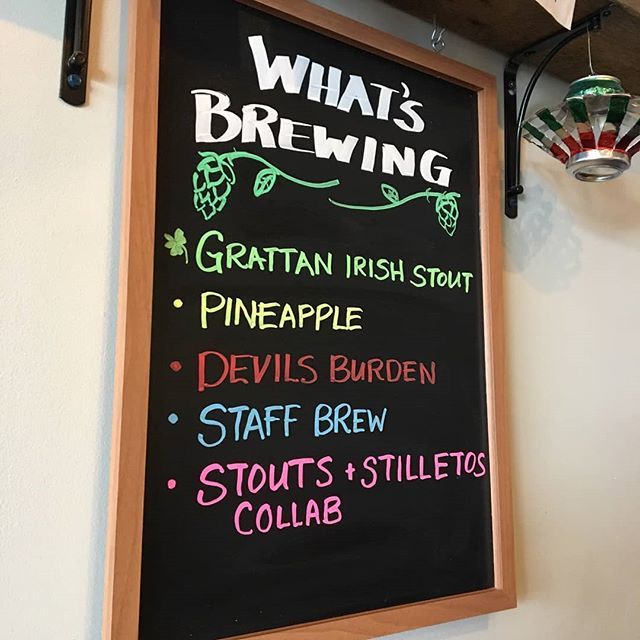 WHAT'S
BREWING
GRATTAN IRISH STOUT
• PINEAPPLE
• DEVILS BURDEN
• STAFF BREW
• STOUTS + STILLETOS
COLLAB